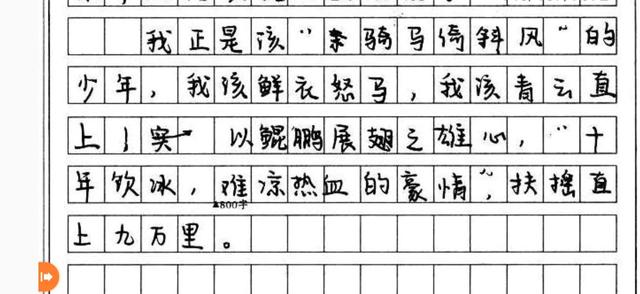 我正是该“骑马倚斜风”的
少年，我该鲜衣怒马，我该青云直
上！以鲲鹏展翅之雄心，“十
年饮冰，难凉热血的豪情”，扶摇直
▲800字
上九万里。